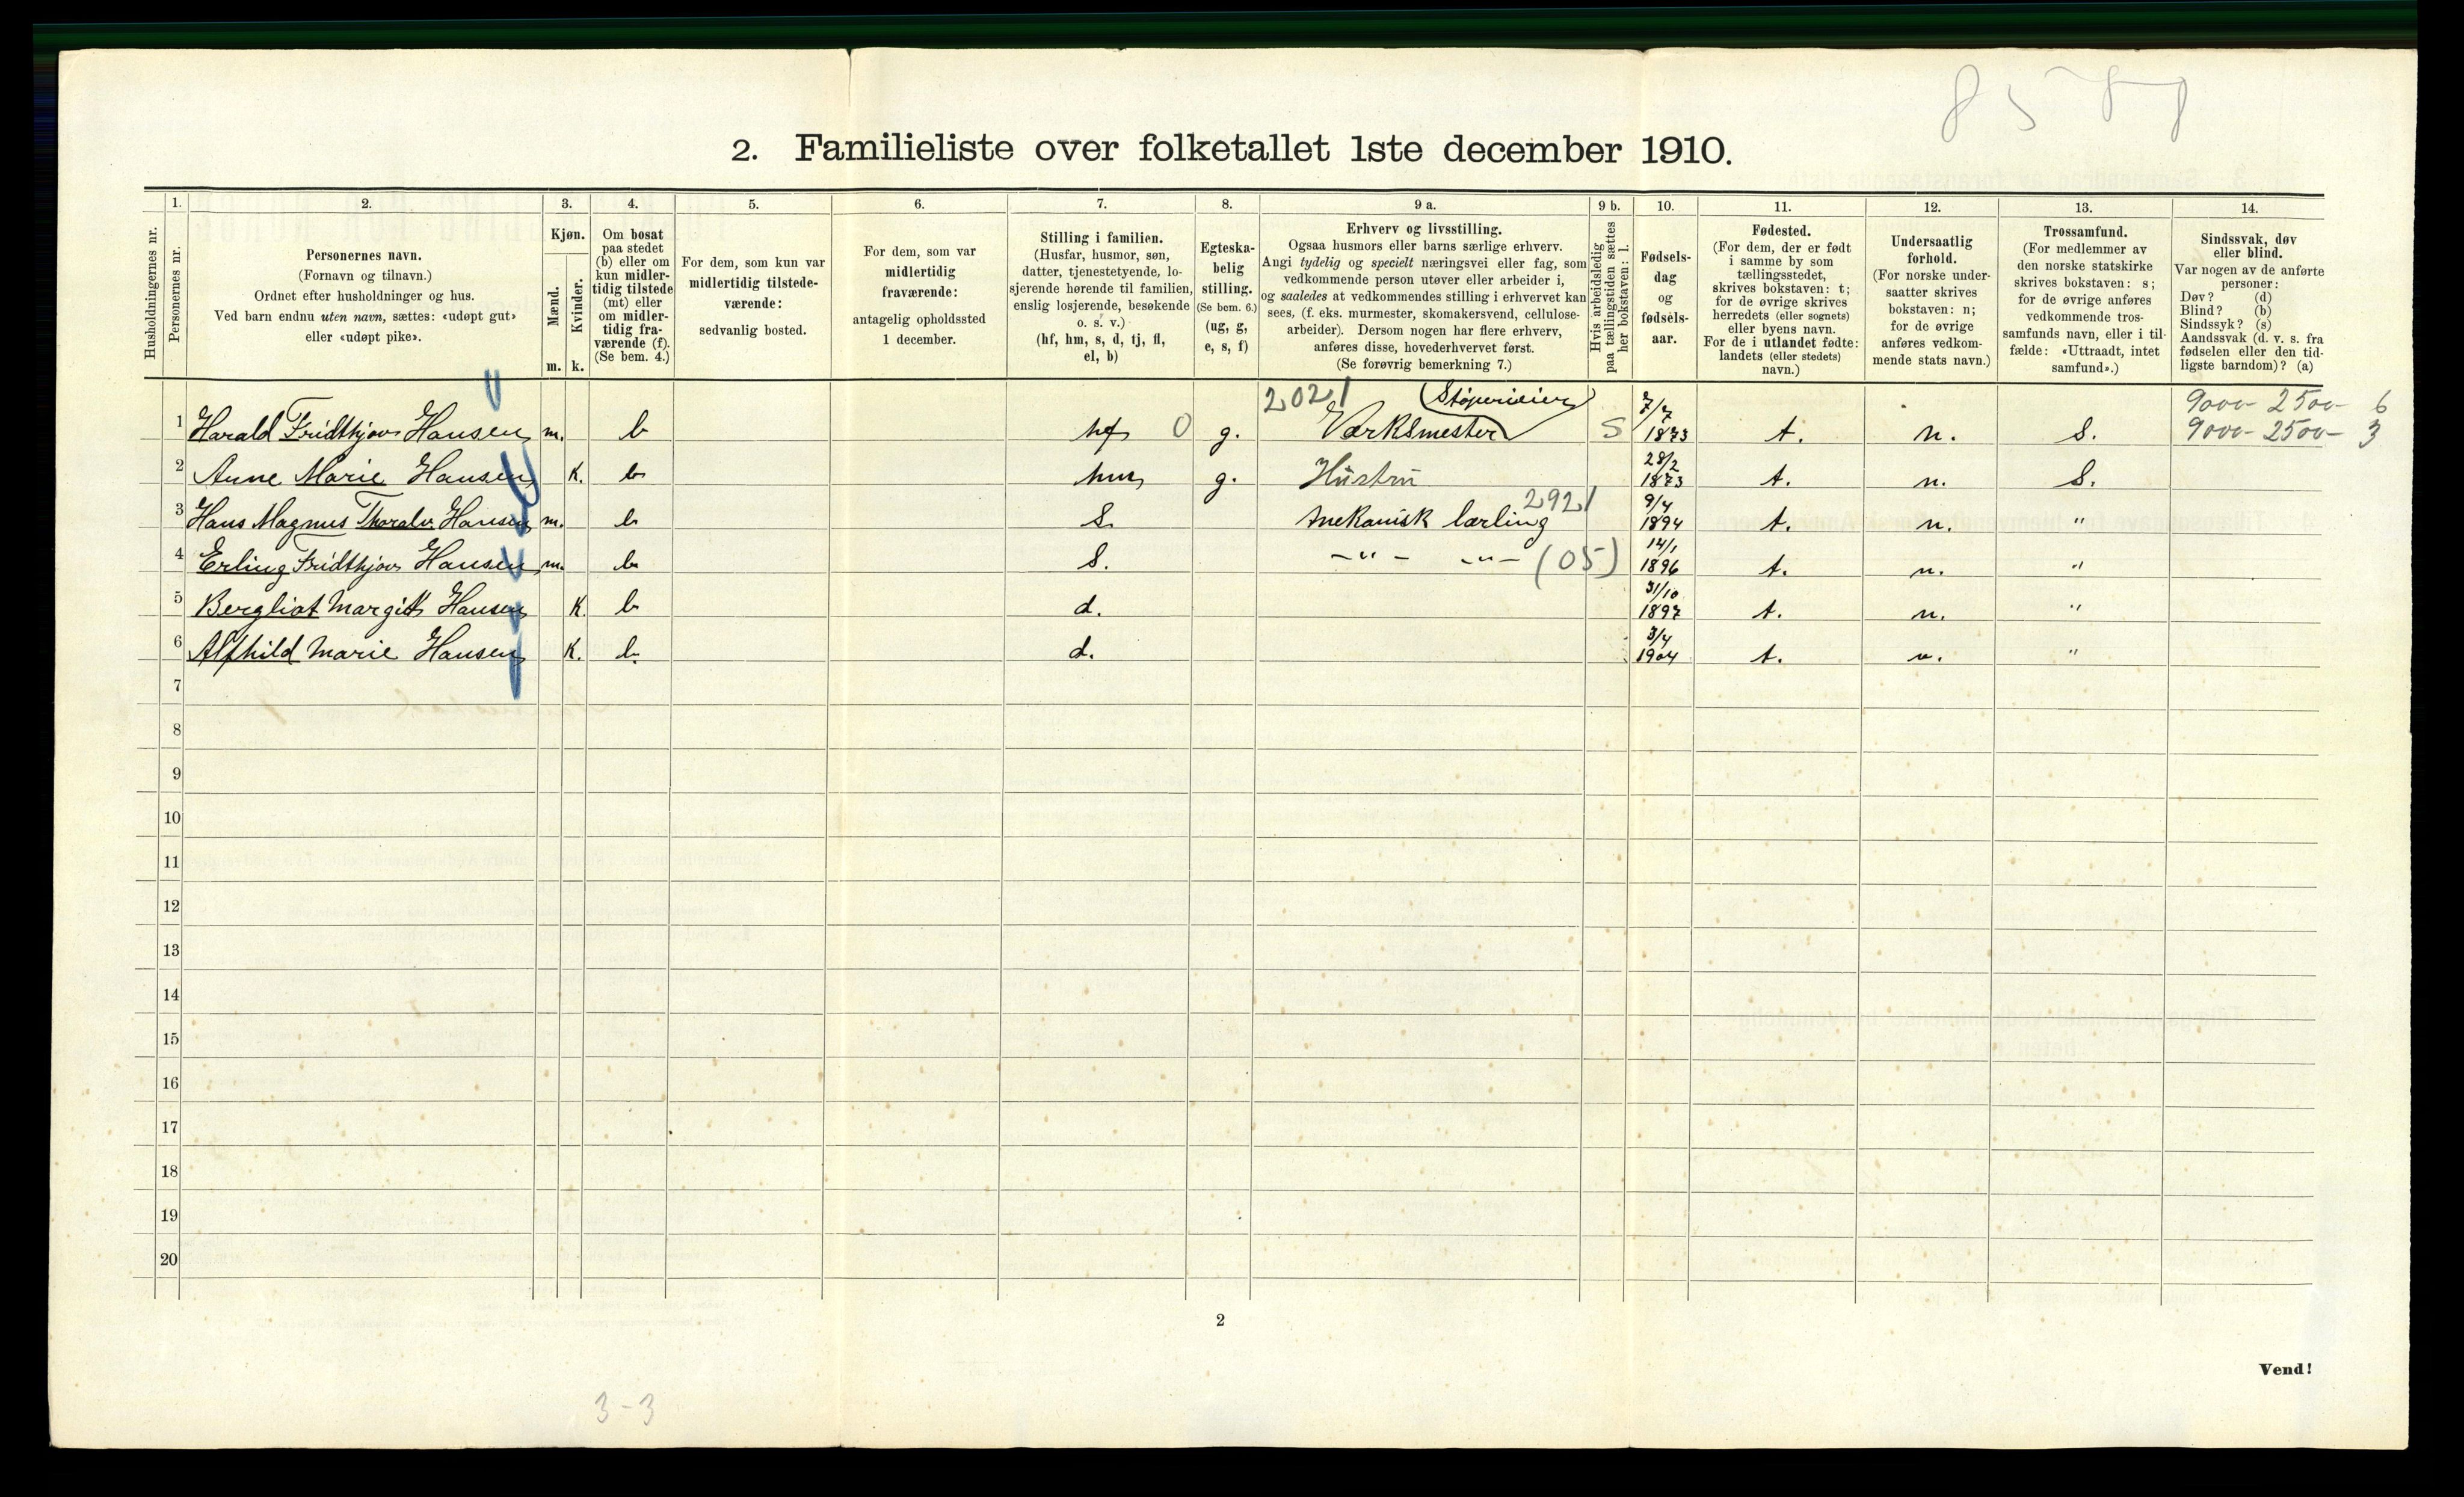 8588
2. Familieliste over folketallet 1ste december 1910.
Husholdningernes nr.
1.
Personernes nr.
2.
Personernes navn.
(Fornavn og tilnavn.)
Ordnet efter husholdninger og hus.
Ved barn endnu uten navn, sættes: «udøpt gut»
eller «udøpt pike».
3.
Kjøn.
Mænd.
Kvinder.
m. k.
4.
Om bosat
paa stedet
(b) eller om
kun midler-
tidig tilstede
(mt) eller
om midler-
tidig fra-
værende (f).
(Se bem. 4.)
5.
For dem, som kun var
midlertidig tilstede-
værende:
sedvanlig bosted.
6.
For dem, som var
midlertidig
fraværende:
antagelig opholdssted
1 december.
7.
Stilling i familien.
(Husfar, husmor, søn,
datter, tjenestetyende, lo-
sjerende hørende til familien,
enslig losjerende, besøkende
o. s. v.)
(hf, hm, s, d, tj, fl,
el, b)
8.
Egteska-
belig
stilling.
(Se bem. 6.)
(ug, g,
e, s, f)
9 a.
Erhverv og livsstilling.
Ogsaa husmors eller barns særlige erhverv.
Angi tydelig og specielt næringsvei eller fag, som
vedkommende person utøver eller arbeider i,
og saaledes at vedkommendes stilling i erhvervet kan
sees, (f. eks. murmester, skomakersvend, cellulose-
arbeider). Dersom nogen har flere erhverv,
anføres disse, hovederhvervet først.
(Se forøvrig bemerkning 7.)
9 b.
Hvis arbeidsledig
paa tællingstiden sættes
her bokstaven: l.
10.
Fødsels-
dag
og
fødsels-
aar.
11.
Fødested.
(For dem, der er født
i samme by som
tællingsstedet,
skrives bokstaven: t;
for de øvrige skrives
herredets (eller sognets)
eller byens navn.
For de i utlandet fødte:
landets (eller stedets)
navn.)
12.
Undersaatlig
forhold.
(For norske under-
saatter skrives
bokstaven: n;
for de øvrige
anføres vedkom-
mende stats navn.)
13.
Trossamfund.
(For medlemmer av
den norske statskirke
skrives bokstaven: s;
for de øvrige anføres
vedkommende tros-
samfunds navn, eller i til-
fælde: «Uttraadt, intet
samfund».)
14.
Sindssvak, døv
eller blind.
Var nogen av de anførte
personer:
Døv? (d)
Blind? (b)
Sindssyk? (s)
Aandssvak (d. v. s. fra
fødselen eller den tid-
ligste barndom)? (a)
2021 Støperieier 9000- 2500- 6
1 Harald Fridthjov Hansen m. b hf 0 g. Værksmester S 7/7 1873 t. n. S. 9000- 2500- 3
2 Anne Marie Hansen k. b hm g. Hustru 28/2 1873 t. n. S.
2921
3 Hans Magnus Thoralv Hansen m. b S. mekanisk lærling 9/4 1894 t. n. "
4 Erling Fridthjov Hansen m. b S. -"- -"- (05) 14/1 1896 t. n. "
5 Bergliot Margit Hansen K. b d. 31/10 1897 t. n. "
6 Alfhild Marie Hansen K. b. d. 3/4 1904 t. n. "
7
8
9
10
11
12
13
14
15
16
17
18
19
20
2
Vend!
3-3